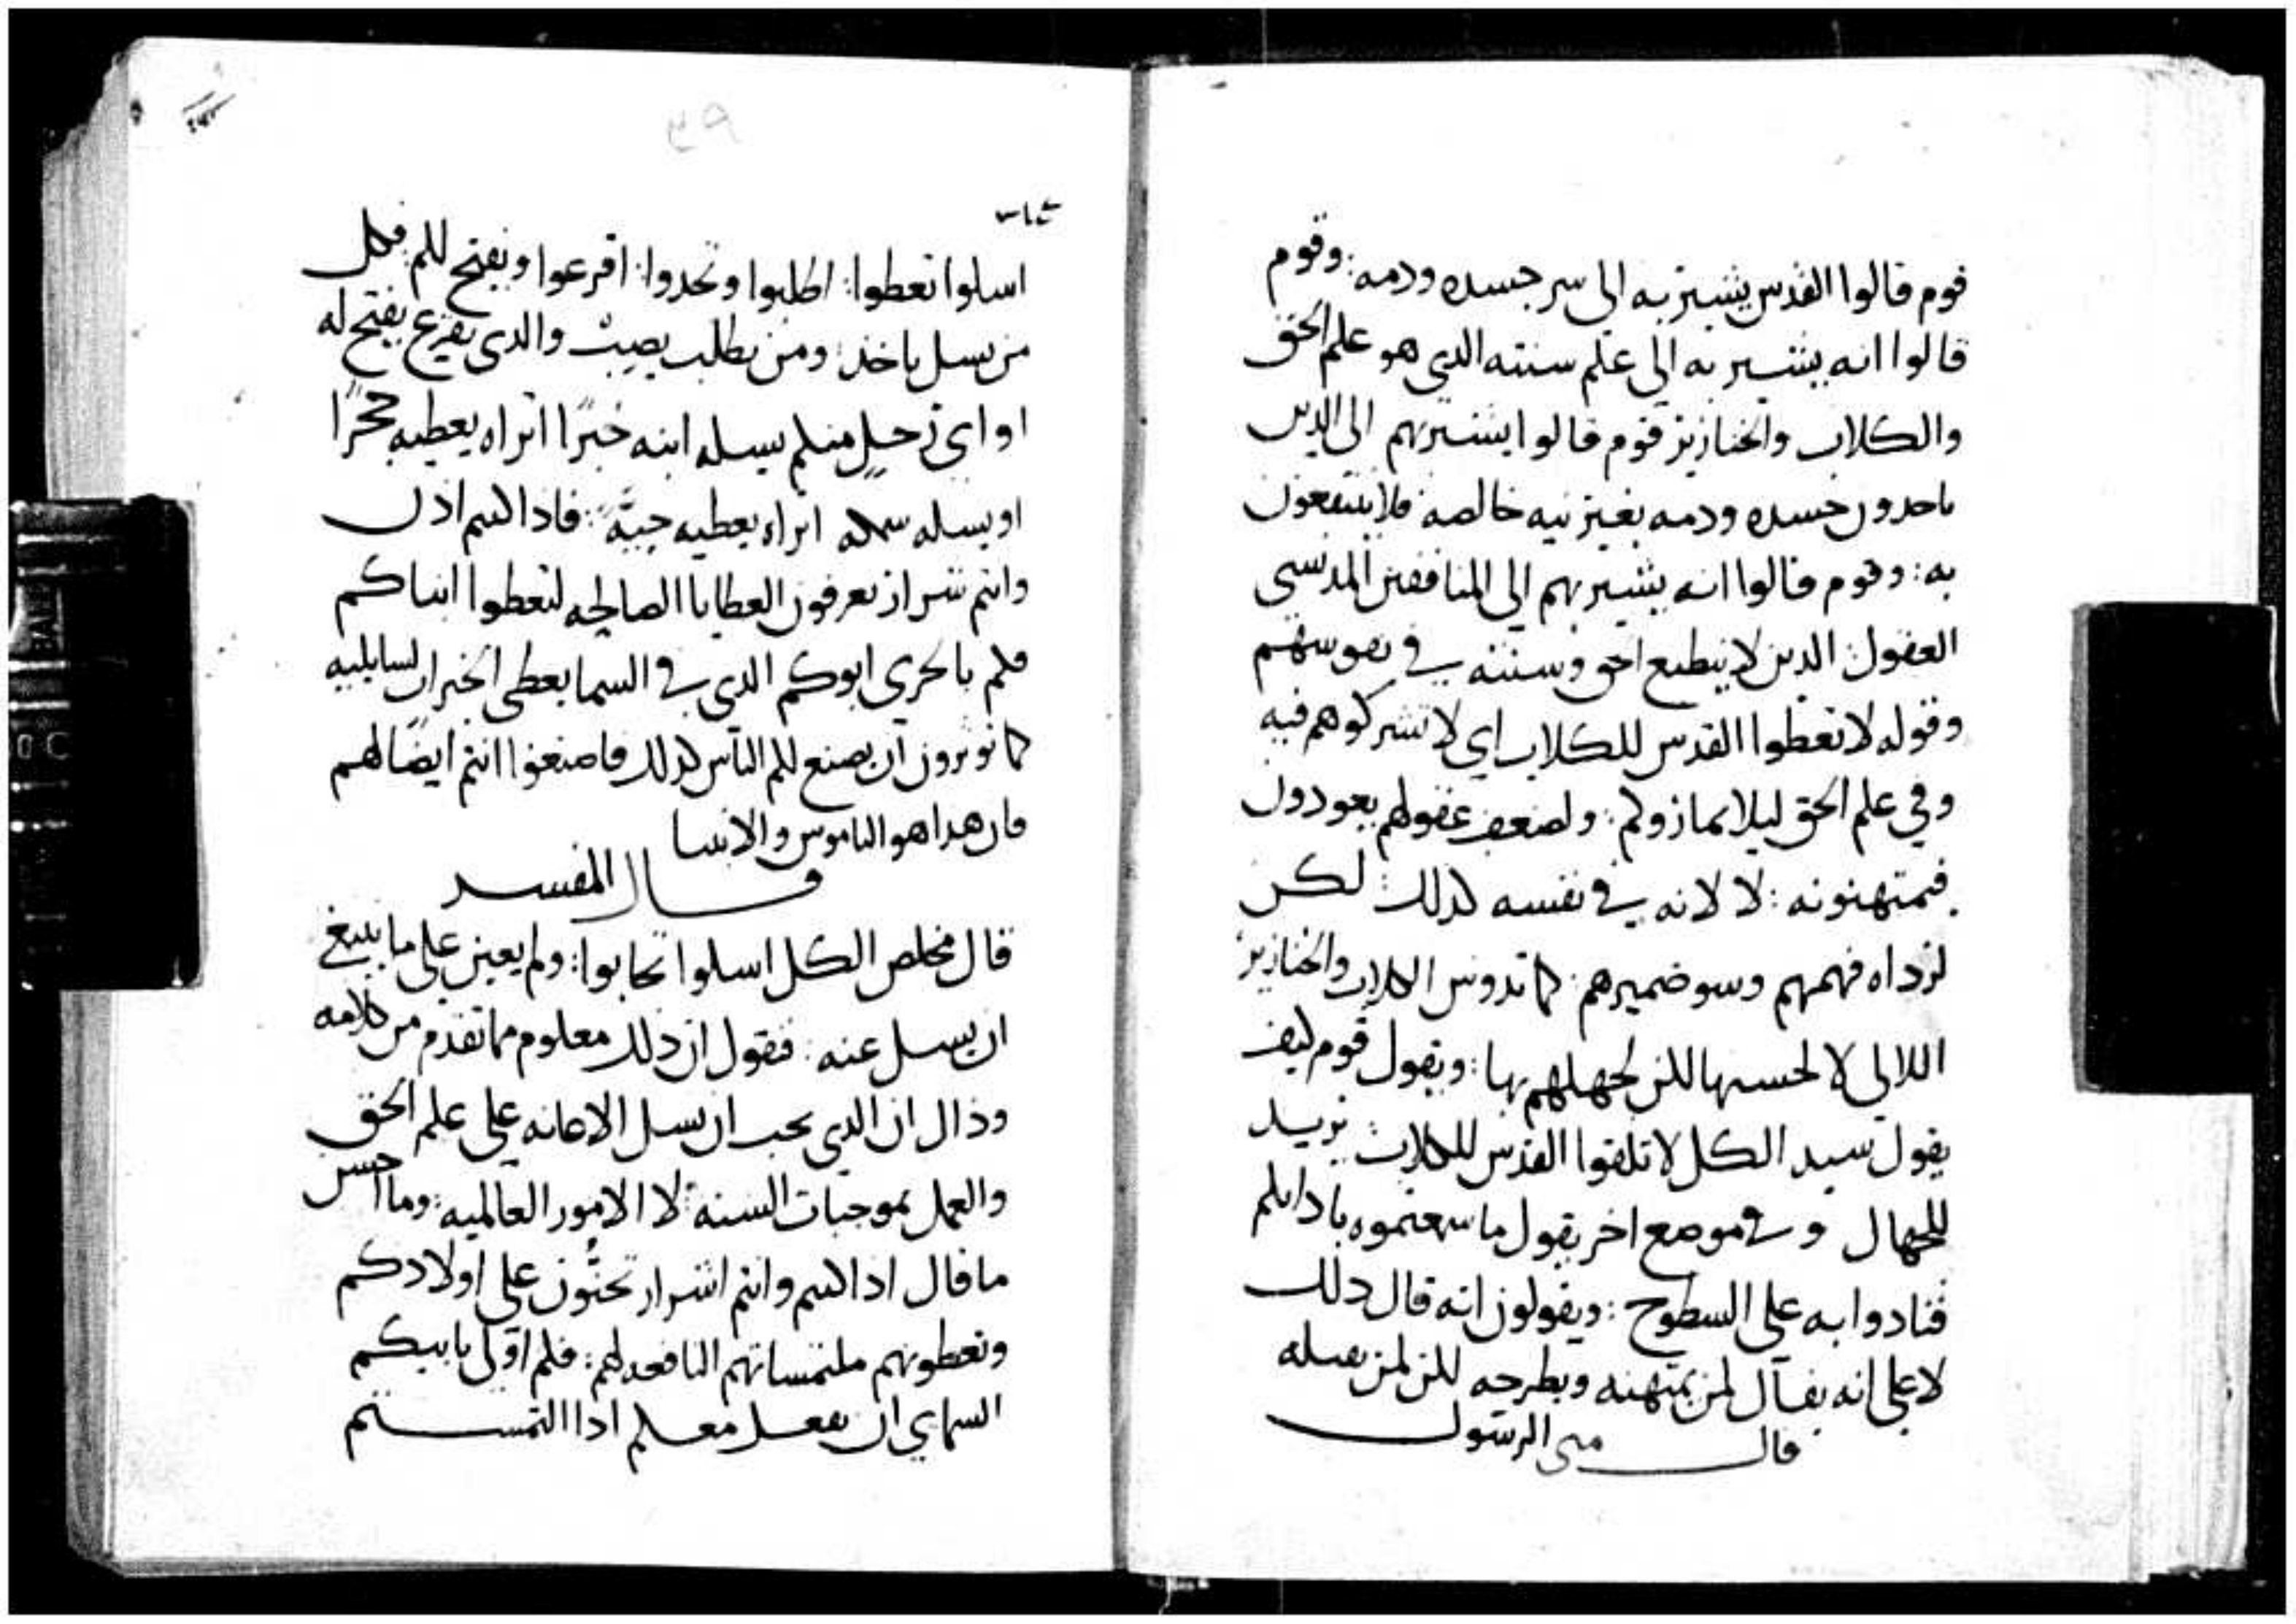 قوم قالوا القدس يشير به الى سر جسده ودمه: وقوم
قالوا انه يشير به الى علم سنته الدي هو علم الحق
والكلاب والخنازير قوم قالوا يشير بهم الى الدين
ياخدون جسده ودمه بغير نيه خالصه فلا ينتفعون
به: وقوم قالوا انه يشير بهم الى المنافقين المدنسي
العقول الدين لا ينطبع الحق وسنته في نفوسهم
وقوله لا تعطوا القدس للكلاب اي لا تشركوهم فيه
وفي علم الحق ليلا يمازوكم: ولضعف عقولهم يعودون
فيمتهنونه: لا لانه في نفسه كدلك لكن
لرداه فهمهم وسو ضميرهم: كما تدوس الكلاب والخنازير
اللالي لا لحسنها لكن لجهلهم بها: ويقول قوم كيف
يقول سيد الكل لا تلقوا القدس للكلاب يريد
للجهال وفي موضع اخر يقول ما سمعتموه باذانكم
فنادوا به على السطوح: ويقولون انه قال دلك
لا على انه يقال لمن يمتهنه ويطرحه لكن لمن يقبله
قال متى الرسول
اسلوا تعطوا: اطلبوا وتجدوا: اقرعوا ويفتح لكم: فكل
من يسل ياخذ: ومن يطلب يصيب والدي يقرع يفتح له
او اي رجل منكم يسله ابنه خبزًا اتراه يعطيه حجرًا
او يسله سمكه اتراه يعطيه حيةً: فاذا كنتم اذن
وانتم شرار تعرفون العطايا الصالحه لتعطوا ابناكم
فكم بالحري ابوكم الدي في السما يعطي الخيرات لسايليه
كما توثرون ان يصنع لكم الناس كدلك فاصنعوا انتم ايضًا لهم
فان هدا هو الناموس والانبيا
قال المفسر
قال مخلص الكل اسلوا تجابوا: ولم يعين على ما ينبغي
ان يسل عنه: فنقول ان ذلك معلوم مما تقدم من كلامه
وذاك ان الدي يجب ان نسل الاعانه على علم الحق
والعمل بموجبات السنه: لا الامور العالميه: وما احسن
ما قال ادا كنتم وانتم اشرار تحنُّون على اولادكم
وتعطونهم ملتمساتهم النافعه لهم: فكم اولى بابيكم
السماي ان يفعل معكم ادا التمستم